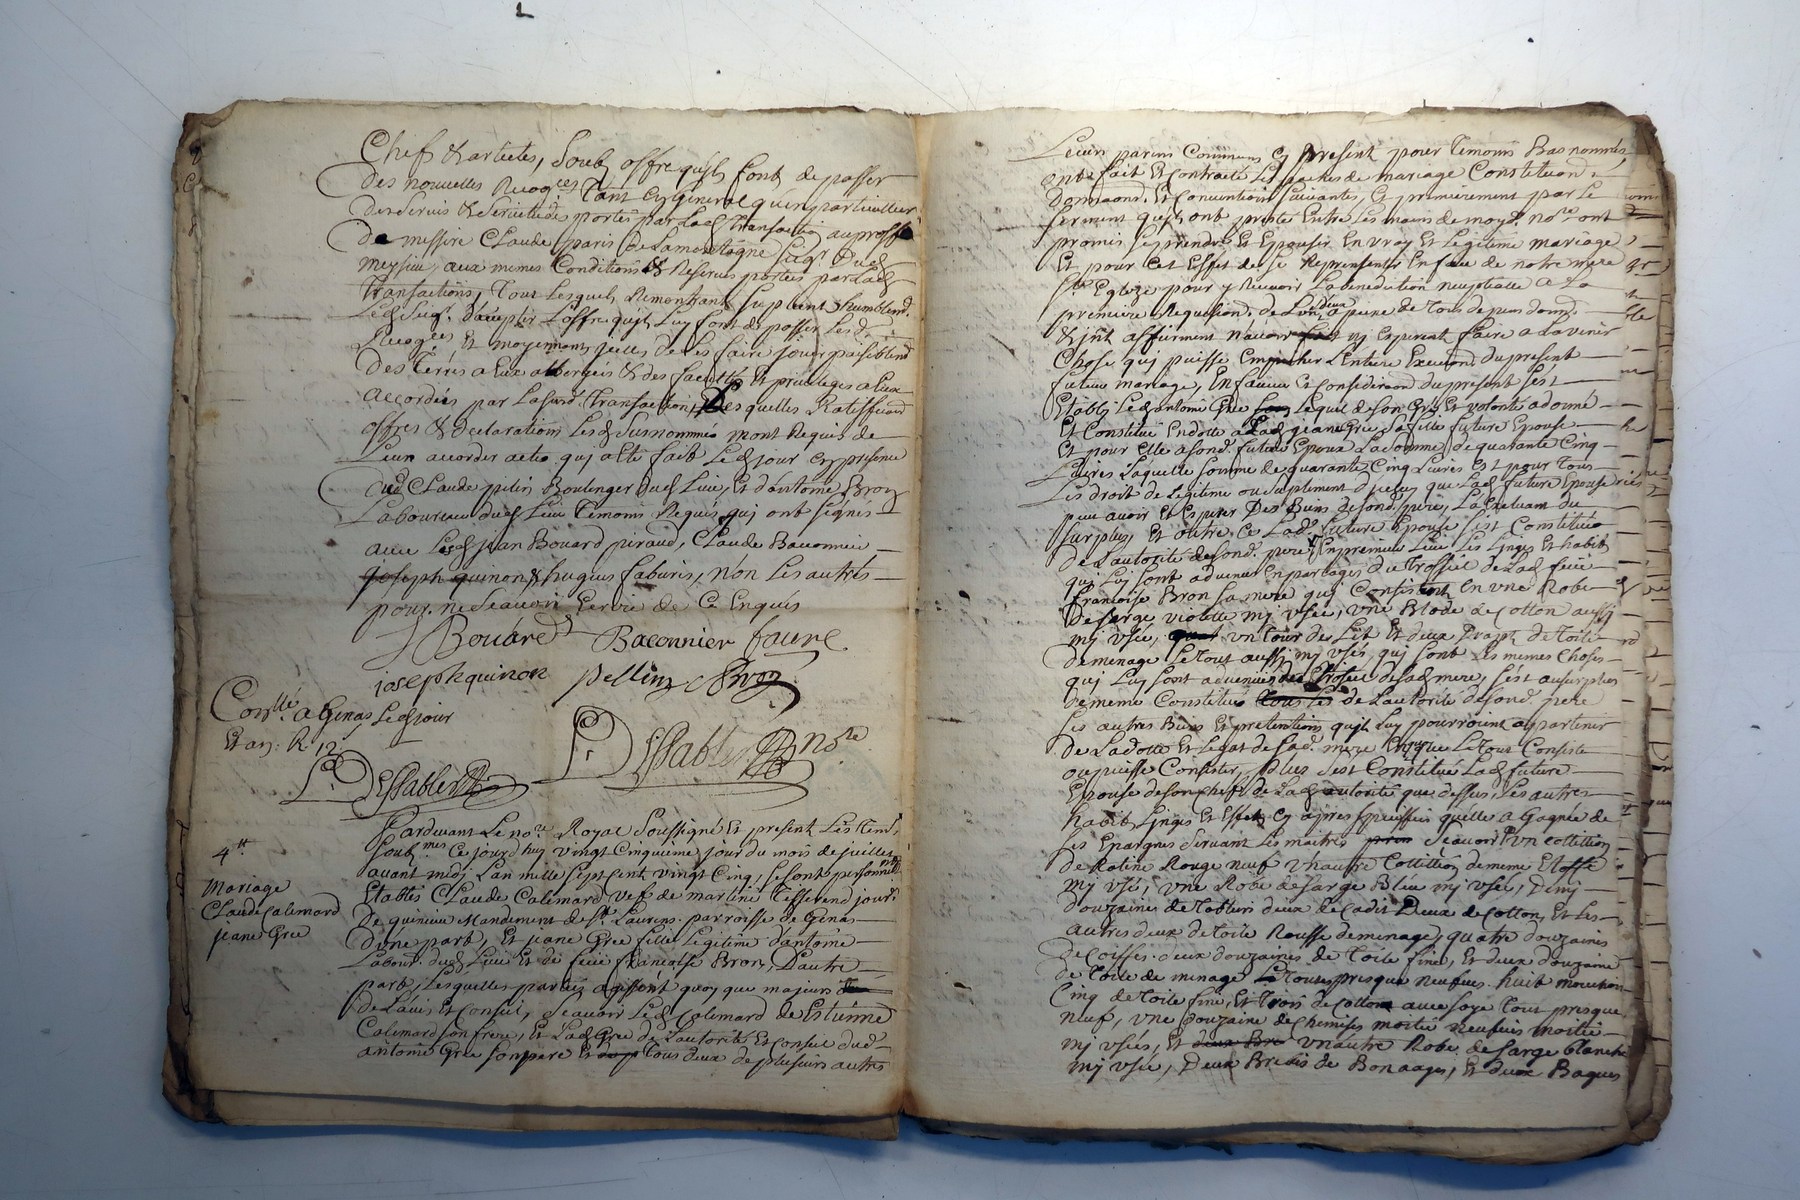 Chefs & articles, Soub offre qu'ils font de passer
des nouvelles Recog.ces Tant en general qu'en particullier
des Servis & Servitudes portés par lad. transaction au proffit
De messire Claude paris de Lamontagne Seig.r dud.
meysieu, aux memes Conditions & Reserves portés par lad.
transactions, Tout Lesquels Remontrans Suplient humblem.t
Led. Seig.r d'accepter L'offre qu'ils Luy font de passer Lesd.
Recog.ces Et moyennant jcelles de Les faire jouir paisiblem.t
Des Terres a Eux albergés & des facultés Et privileges a Eux
accordées par Lasusd. transaction, Desquelles Ratiffication
offres & declarations Lesd. Susnommés m'ont Requis de
Leur accorder acte qui a Eté fait Led. jour En presence
de Claude pelin Boulenger dud. Lieu, Et d'antoine Bron
Laboureur dud. Lieu Temoins Requis qui ont signés
avec Lesd. jean Bouard piraud, Claude Baconnier
joseph quinon & hugues faburis, non Les autres
pour ne Scavoir Ecrire de Ce Enquis
J Bouard Baconnier faure
joseph quinon pellin Bron
Con.llé a Genas Led. jour
Et an: R. 12
Dessablet
Dessablet no.re
Pardevant Le no.re Royal Soussigné Et present Les tem.s
Soub.nes Ce jourd'huy vingt Cinquieme jour du mois de juillet
avant midy L'an mille Sept Cent vingt Cinq, se sont personnell.t
Etablis Claude Calemard vef de martine Tisserend jour.r
De quincieu Mandement de S.t Laurens parroisse de Genas
D'une part, Et jeane Grée fille Legitime d'antoine
Labour. dud. Lieu Et de feüe francoise Bron, D'autre
part, Lesquelles parties agissent quoy que majeurs
de L'avis Et Conseil, Scavoir Led. Calemard de Estienne
Calemard son frere, Et Lad. Grée de L'autorité Et Conseil dud.
antoine Grée son pere Et Tous deux de plusieurs autres
4.tt
Mariage
Claude Calemard
jeane Grée
Leurs parens Communs Cy present pour Temoins Bas nommés
ont fait Et Contracté Les pactes de mariage Constitution
Donnaons. Et Conventions Suivantes, Et premierement par Le
serment qu'ils ont presté Entre Les mains de moyd. no.re ont
promis se prendre Et Epouser En vray Et Legitime mariage
Et pour Cet Effet de se Representer En face de notre mere
S.te Eglize pour y Recevoir La benediction nuptialle a La
premiere Requisition de L'un d'eux a peine de Tous depens dom.
& int affirment n'avoir fait ny Esperent faire a L'avenir
Chose qui puisse Empecher L'Entiere Execuon. du present
futur mariage, En faveur Et Consideraon. du present S'est
Etably Led. antoine Grée Lequel de son Gré Et volonté a donné
Et Constitué En dotte a Lad. jeane Grée sa fille future Epouse
Et pour Elle a sond. futur Epoux La somme de quarante Cinq
Livres Laquelle somme de quarante Cinq Livres Est pour Tous
Les droit de Legitime ou suplement d'jcelle que Lad. future Epouse
peut avoir Et Esperer Des Biens de sond. pere, La Excluant du
surplus, Et outre Ce Lad. future Epouse s'est Constitué
De L'autorité de sond. pere En premier Lieu Les Linges Et habits
qui Luy sont advenus En partages du trossel de Lad. feüe
francoise Bron sa mere qui Consistent En une Robe
De sarge violette my usée, une Blode de Cotton aussy
my usée, un tour de Lit Et deux Draps de Toile
de menage Le tout aussy my usés, qui sont Les memes Choses
qui Luy sont advenües de sad. mere, S'est au surplus
de meme Constitué de L'autorité de sond. pere
Les autres Biens Et pretentions qu'ils Luy pourroient appartenir
De La dotte Et Legat de sad. mere En que Le Tout Consiste
ou puisse Consister, plus s'est Constitués Lad. future
Epouse de son Chef de Lad. autorité que dessus, Les autres
habits Linges Et Effets Cy apres specifiés qu'elle a Gagnée de
Ses Epargnes Servant Les maitres Scavoir Un Cottillion
de Ratine Rouge neuf Un autre Cottillion de meme Etoffe
my usé, une Robe de sarge Bleu my usée, Demy
douzaine de Tabliers deux de Cadis Deux de Cotton, Et Les
autres deux de Toile Rousse de menage, quatre douzaines
de Coiffes deux douzaines de Toile fine, Et deux douzaine
de Toile de menage Le Tout presque neufves huit mouchoirs
Cinq de Toile fine, Et Trois de Cotton avec soye Tout presque
neuf, une Douzaine de Chemises moitié neufves moitié
my usées, Et un autre Robe de sarge blanche
my usée, Deux Brebis de Bon aage, Et deux Bagues